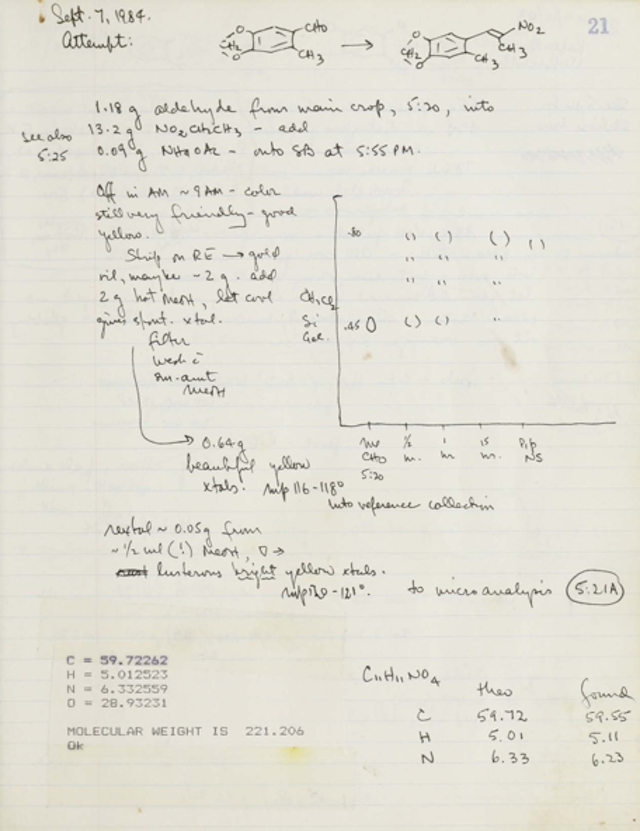 Sept. 7, 1984.
21
Attempt:
O CH2 O CHO CH3 → O CH2 O NO2 CH3 CH3
1.18 g aldehyde from main crop, 5:20, into
see also 13.2 g NO2CH2CH3 - add
5:25 0.09 g NH4OAc - onto SB at 5:55 PM.
Off in AM ~9AM - color
still very friendly - good
yellow.
Strip on RE → gold
oil, maybe ~2 g. add
2 g hot MeOH, let cool
gives spont. xtal.
filter
wash c̄
sm. amt
MeOH
.80
CH2Cl2
Si
Gel.
.45
Me ½ 1 15 Pip
CHO m. hr hrs. NS
5:20
0.64 g
beautiful yellow
xtals. mp 116-118°
into reference collection
rextal ~ 0.05 g from
~ ½ ml (!) MeOH, ▽ →
lusterous bright yellow xtals.
mp 120-121°. to microanalysis 5:21A
C = 59.72262
H = 5.012523
N = 6.332559
O = 28.93231
MOLECULAR WEIGHT IS 221.206
Ok
C11H11NO4
theo found
C 59.72 59.55
H 5.01 5.11
N 6.33 6.23